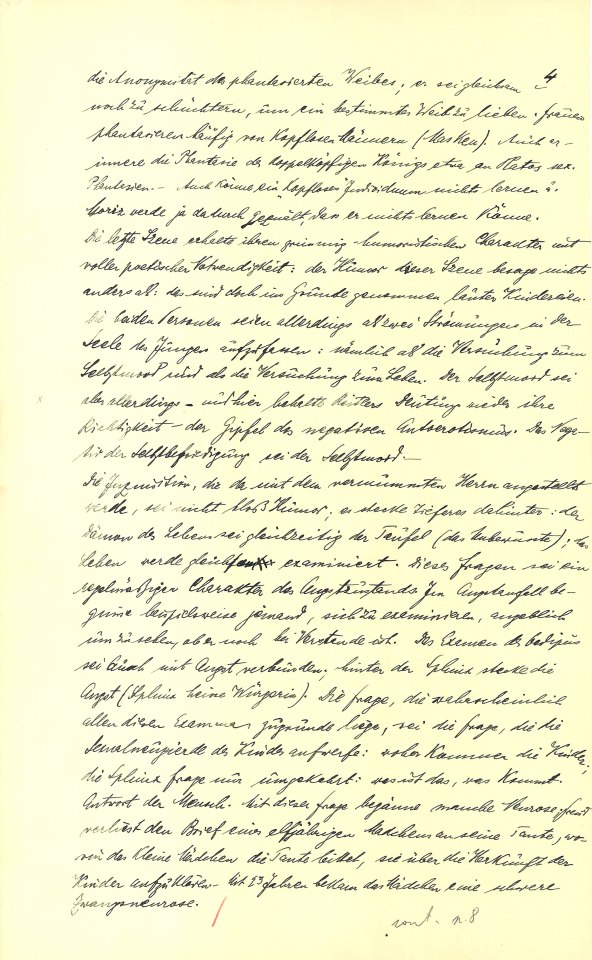 4
die Anonymität des phantasierten Weibes; er sei gleichsam
noch zu schüchtern, um ein bestimmtes Weib zu lieben. Frauen
phantasieren häufig von kopflosen Männern (Masken). Auch er-
innere die Phantasie des doppelköpfigen Königs etwa an Ratos sex.
Phantasien.- Auch könne ein "kopfloses" Individuum "nichts lernen".
Moriz werde ja dadurch gequält, dass er nichts lernen könne.
Die letzte Szene erhalte ihren grimmig-humoristischen Charakter mit
voller poetischer Notwendigkeit: der Humor dieser Szene besage nichts
anders als: das sind doch im Grunde genommen lauter Kindereien.
Die beiden Personen seien allerdings als zwei Strömungen in der
Seele des Jungen aufzufassen: nämlich als die Versuchung zum
Selbstmord und als die Versuchung zum Leben. Der Selbstmord sei
aber allerdings - und hier behalte Reitlers Deutung wieder ihre
Richtigkeit - der Gipfel des negativen Autoerotismus. Das Nega-
tiv der Selbstbefriedigung sei der Selbstmord.-
Die Inquisition, die da mit dem vermummten Herrn angestellt
werde, sei nicht bloß Humor; es stecke tieferes dahinter: der
Dämon des Lebens sei gleichzeitig der Teufel (das Unbewusste); das
Leben werde gleichsam examiniert. Dieses Fragen sei ein
regelmäßiger Charakter des Angstzustandes. Im Angstanfall be-
ginne beispielsweise jemand, sich zu examinieren, angeblich
um zu sehen, ob er noch bei Verstande ist. Das Examen des Oedipus
sei auch mit Angst verbunden. Hinter der Sphinx stecke die
Angst (Sphinx heiße Würgerin). Die Frage, die wahrscheinlich
allen diesen Examina zugrunde liege, sei die Frage, die die
Sexualneugierde des Kindes aufwerfe: woher kommen die Kinder;
die Sphinx frage nur umgekehrt: was ist das, was kommt.
Antwort der Mensch. Mit dieser Frage begänne manche Neurose. Freud
verliest den Brief eines elfjährigen Mädchens an seine Tante, wo-
rin das kleine Mädchen die Tante bittet, sie über die Herkunft der
Kinder aufzuklären. Mit 23 Jahren bekam das Mädchen eine schwere
Zwangsneurose.
cont. p. 8